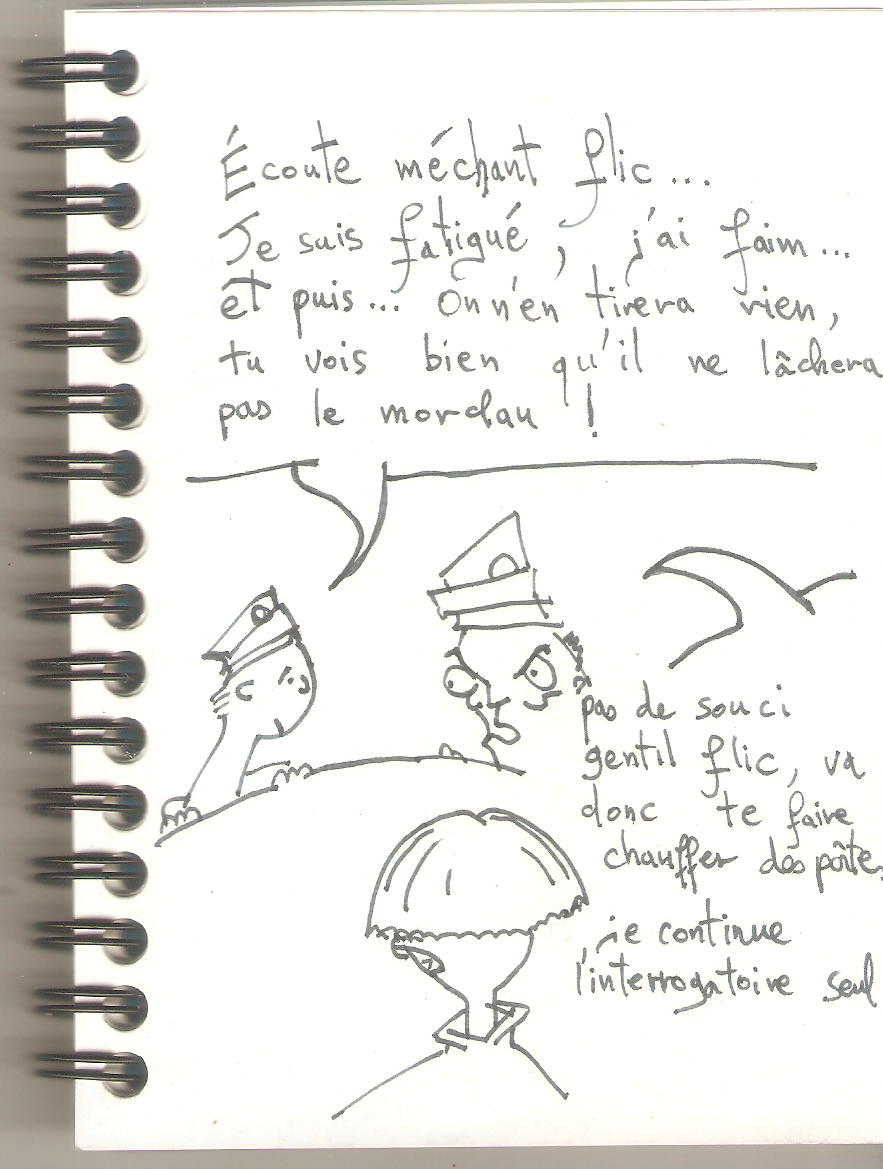 Écoute méchant flic...
Je suis fatigué, j'ai faim...
et puis... On n'en tirera rien,
tu vois bien qu'il ne lâchera
pas le mordau !
pas de souci
gentil flic, va
donc te faire
chauffer des pâtes,
je continue
l'interrogatoire seul